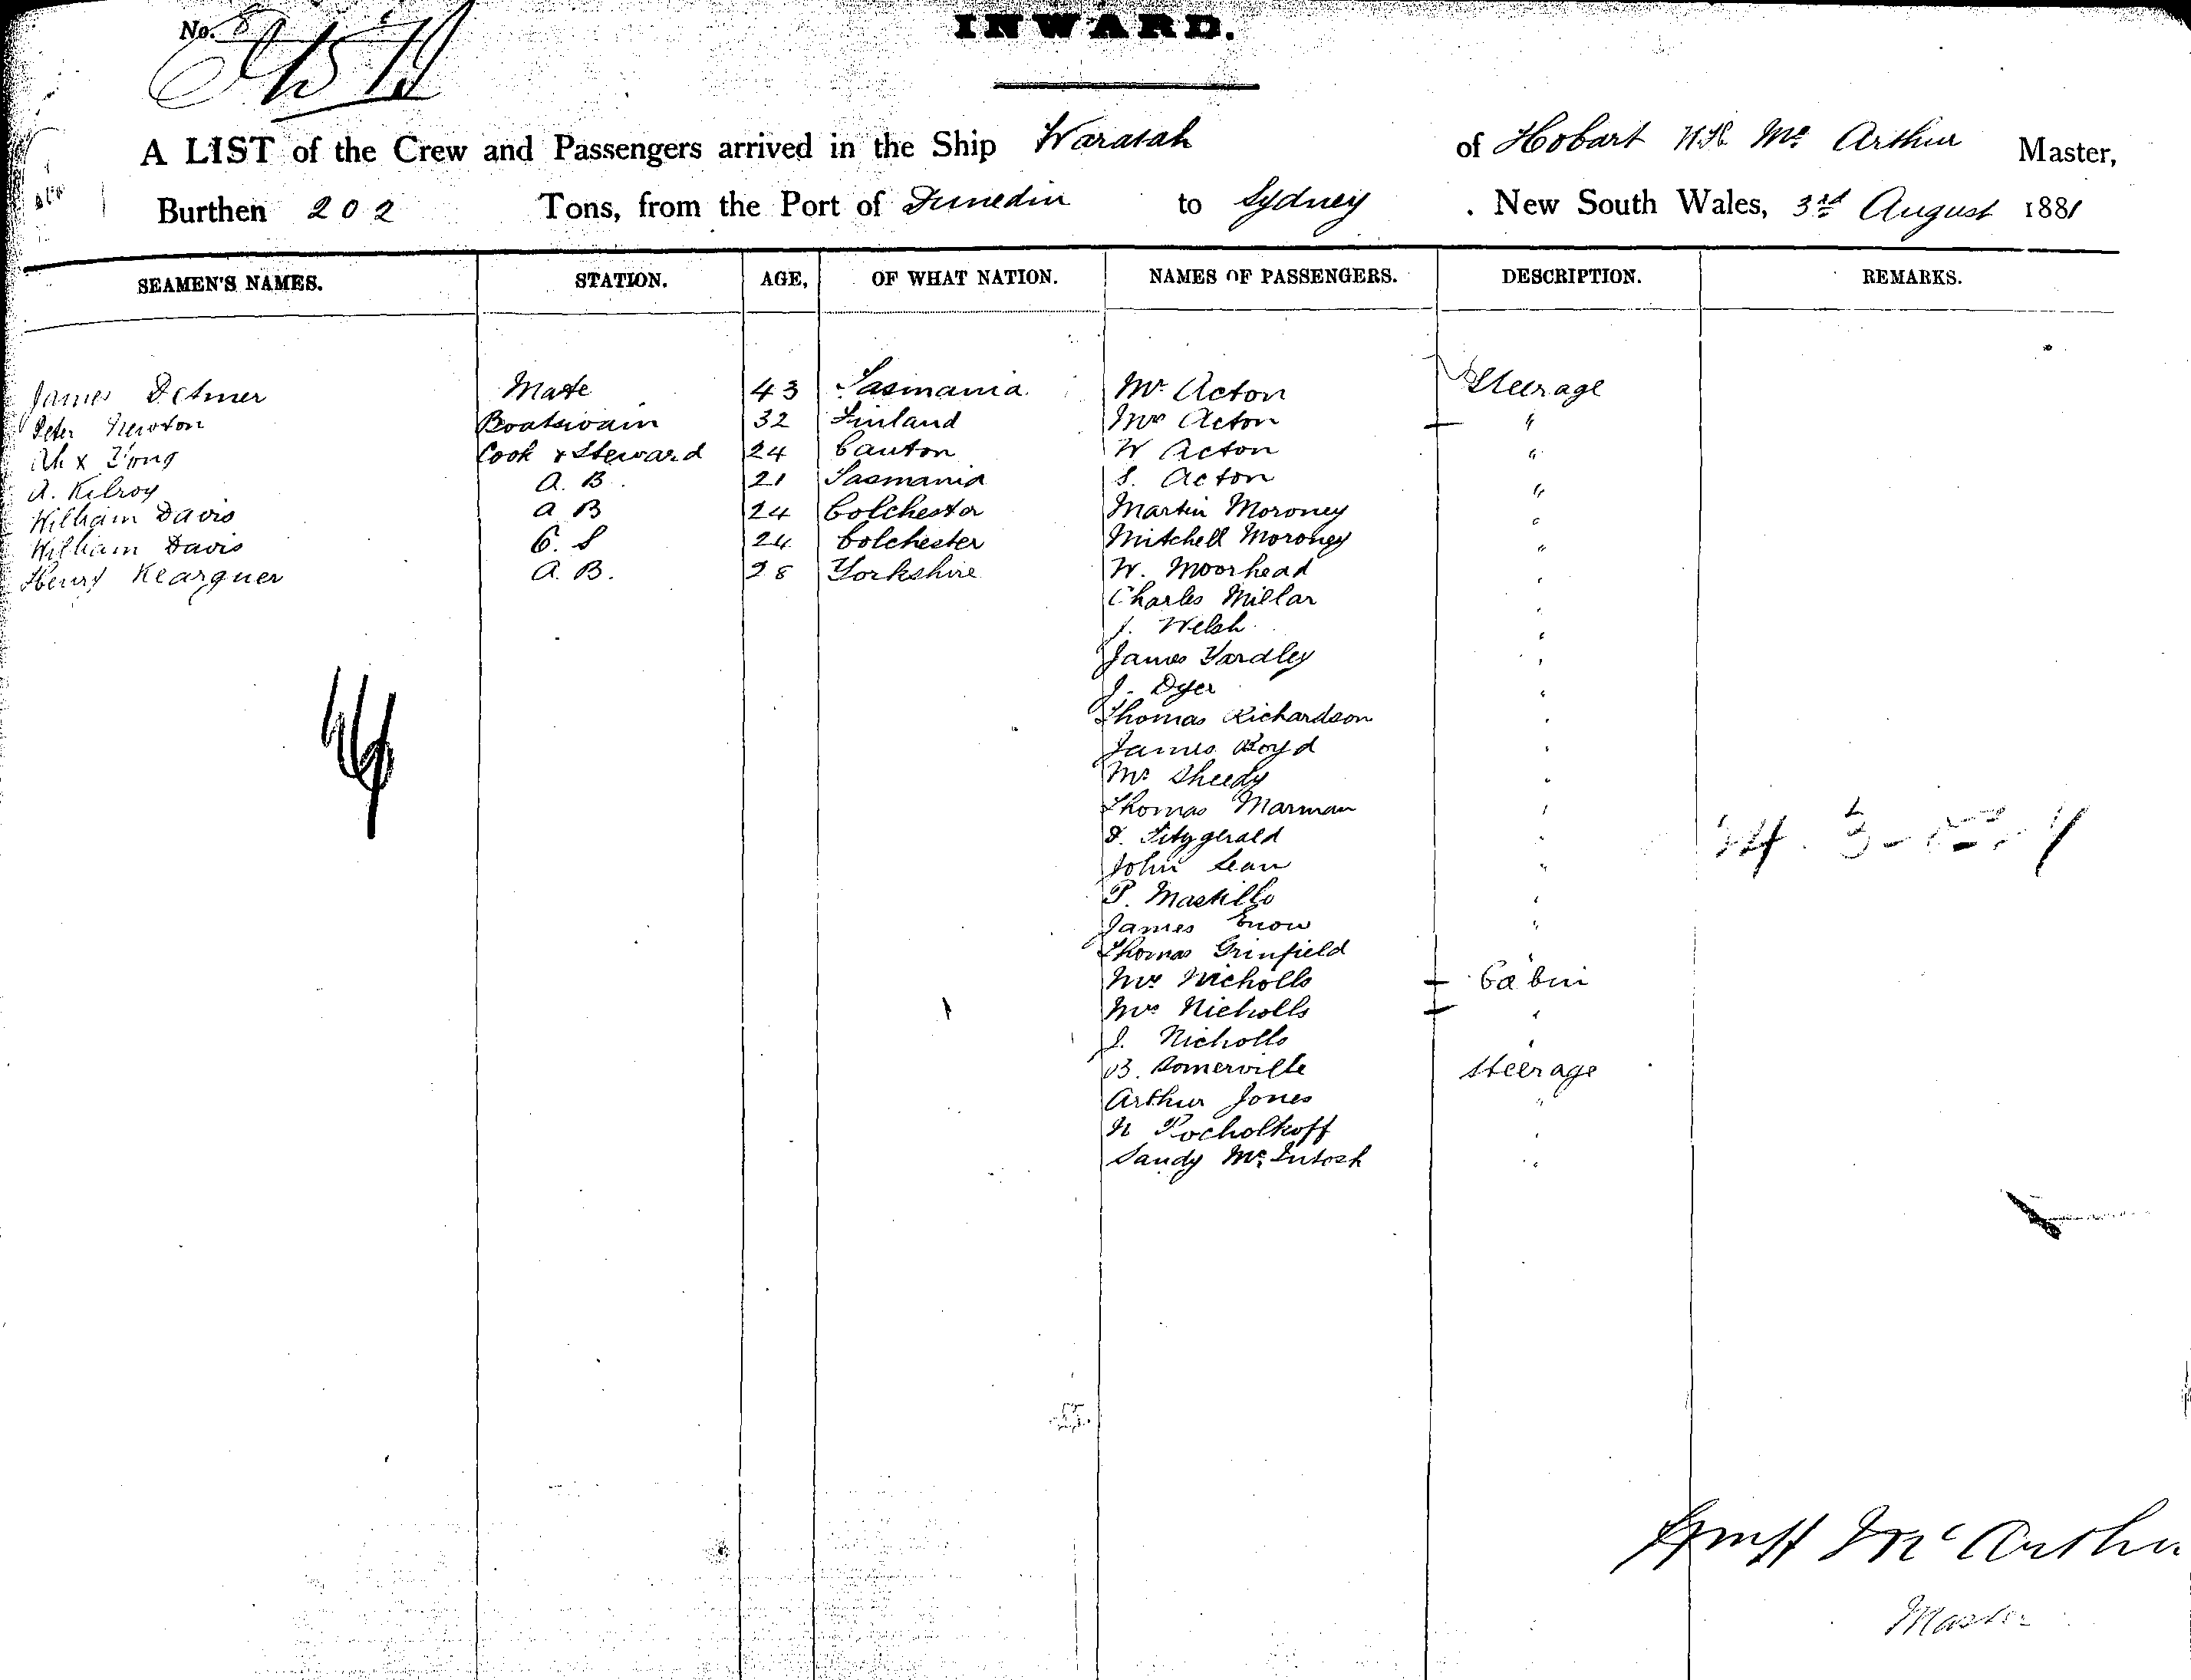 No. 8
INWARD.
A LIST of the Crew and Passengers arrived in the Ship Waratah of Hobart W.H. Mc Arthur Master,
Burthen 202 Tons, from the Port of Dunedin to Sydney . New South Wales, 3rd August 1881
SEAMEN'S NAMES. STATION. AGE, OF WHAT NATION. NAMES OF PASSENGERS. DESCRIPTION. REMARKS.
James Mate 43 Tasmania Mr Acton Steerage
Peter Newton Boatswain 32 Finland Mrs Acton "
Ah x Cook & Steward 24 Canton W Acton "
A. Kilroy A. B. 21 Tasmania S. Acton "
William Davis A B 24 Colchester Martin Moroney "
William Davis O. S 24 Colchester Mitchell Moroney "
Henry A. B. 28 Yorkshire W. Moorhead "
Charles Millar "
J. Welsh "
James Yardley "
J. Dyer "
Thomas Richardson "
James Boyd "
Mr Sheedy "
Thomas Marman "
D. Fitzgerald "
John "
P. "
James "
Thomas Grinfield "
Mr Nicholls Cabin
Mrs Nicholls "
J. Nicholls "
B. Somerville Steerage
Arthur Jones "
N Pocholkoff "
Sandy McIntosh "
McArthur
Master